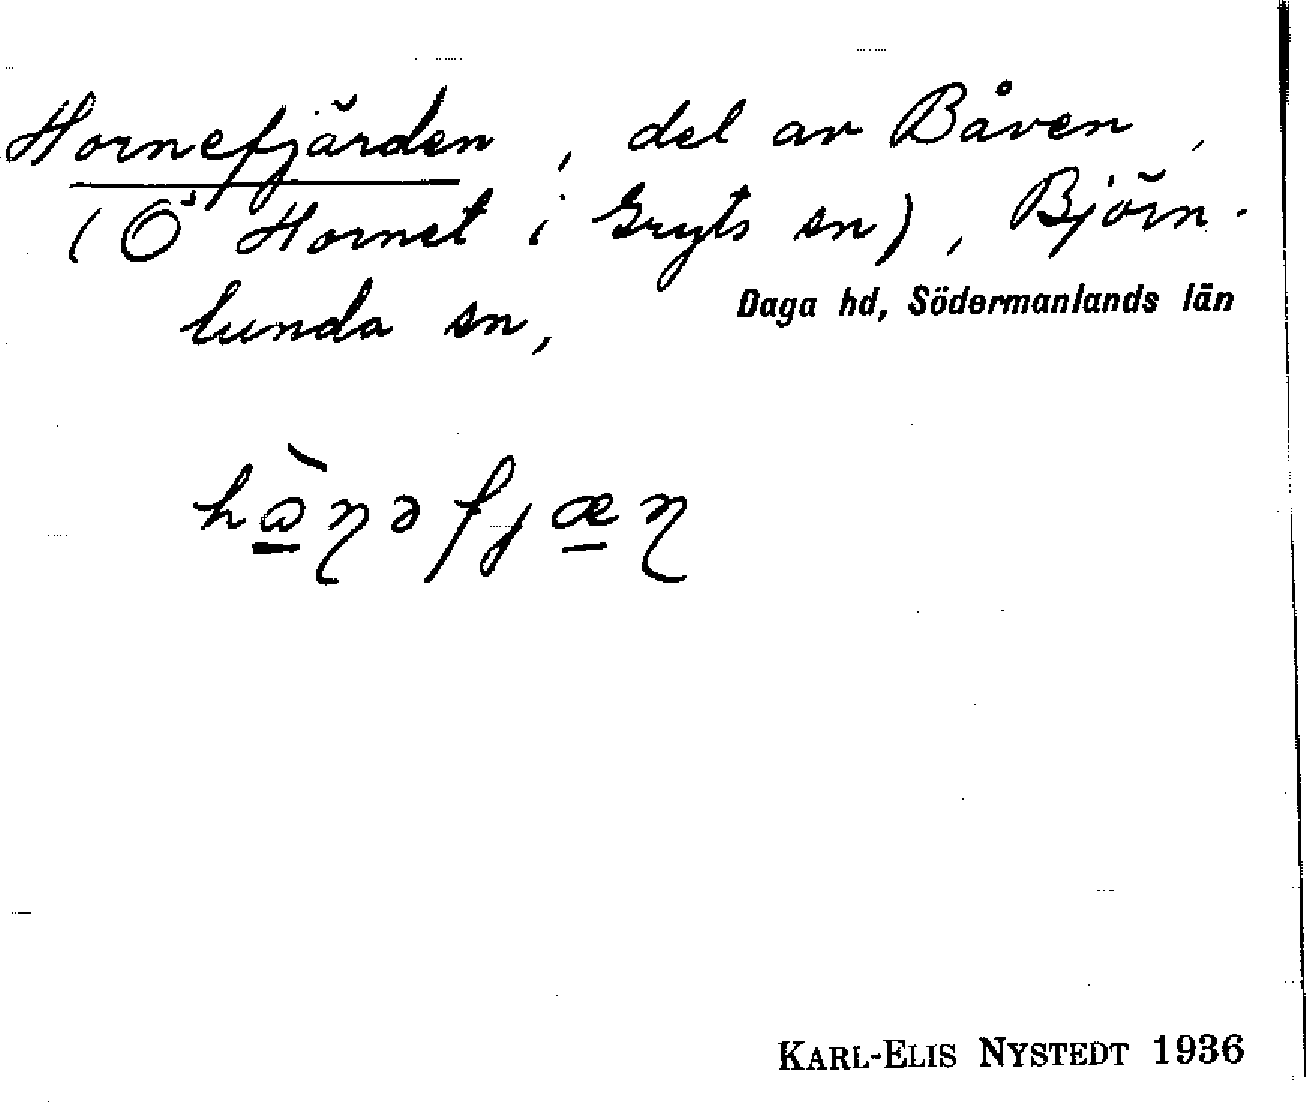 Hornefjärden, del av Båven,
(Ö Hornet i Gryts sn), Björn-
lunda sn, Daga hd, Södermanlands län
KARL-ELIS NYSTEDT 1936